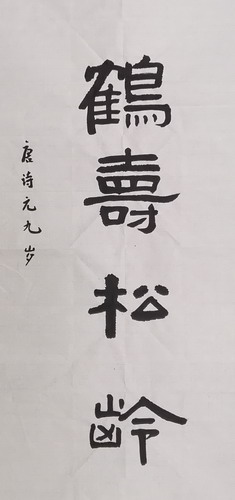 鶴壽松齡
唐诗元九岁